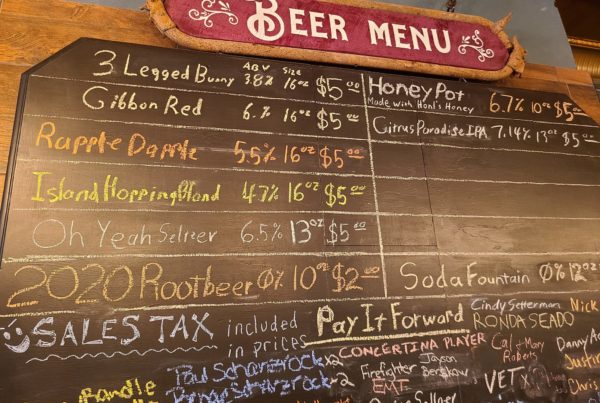 BEER MENU
ABV Size
3 Legged Bunny 3.8% 16oz $5.00
Gibbon Red 6.% 16oz $5.00
Rapple Dapple 5.5% 16oz $5.00
Island Hopping Blond 4.7% 16oz $5.00
Oh Yeah Seltzer 6.5% 13oz $5.00
2020 Rootbeer 0% 10oz $2.00
Honey Pot 6.7% 10oz $5
Made with Honl's Honey
Citrus Paradise IPA 7.14% 13oz $5.00
Soda Fountain 0% 12oz
SALES TAX included
in prices
Pay It Forward
CONCERTINA PLAYER
Firefighter
EMT
Jayson
Cindy Setterman
RONDA SEADO
Cal + Mary
Roberts
VET
Nick
Danny
Justin
Chris
Paul Schanzrock x2